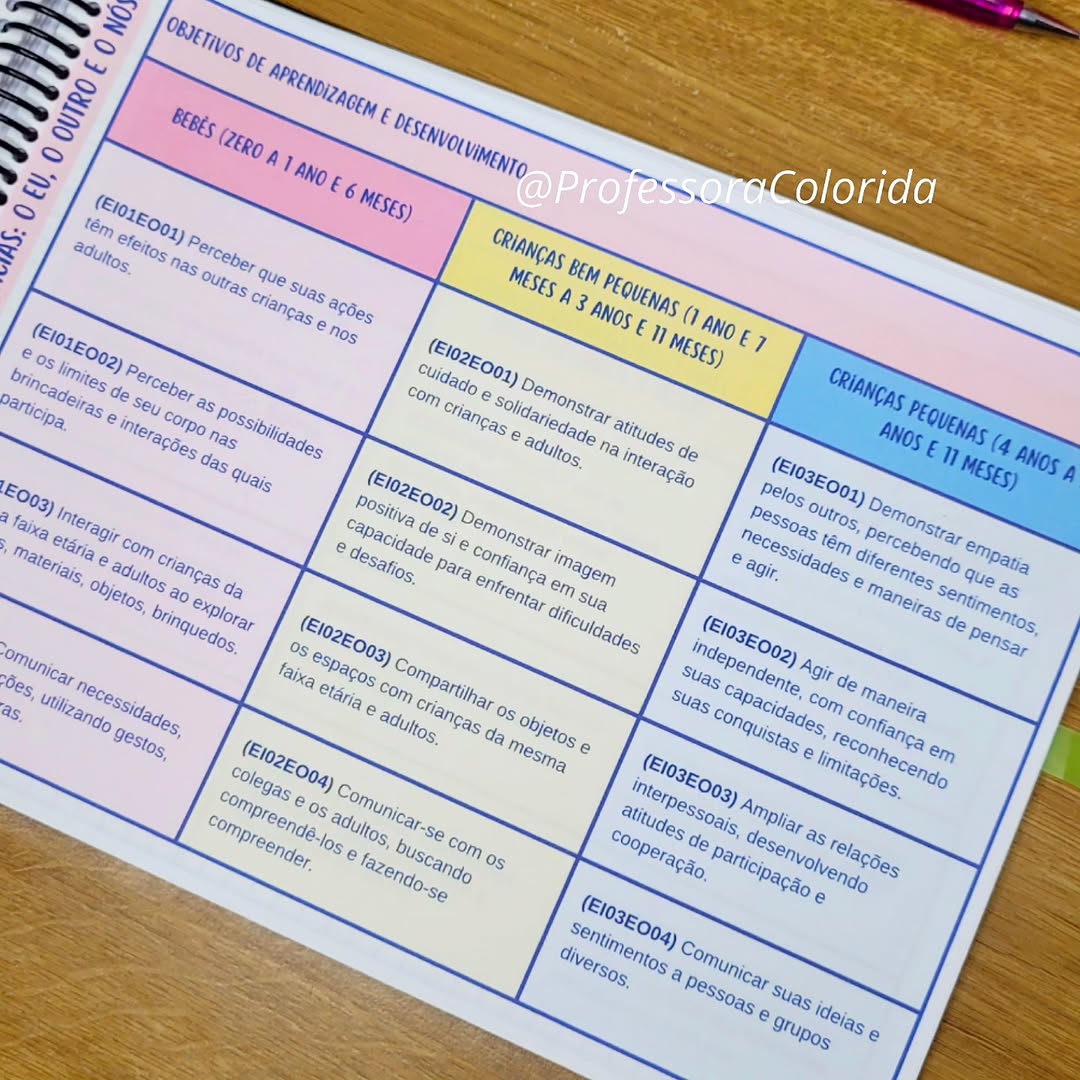 CIAS: O EU, O OUTRO E O NÓS
OBJETIVOS DE APRENDIZAGEM E DESENVOLVIMENTO
@ProfessoraColorida
BEBÊS (ZERO A 1 ANO E 6 MESES)
(EI01EO01) Perceber que suas ações
têm efeitos nas outras crianças e nos
adultos.
(EI01EO02) Perceber as possibilidades
e os limites de seu corpo nas
brincadeiras e interações das quais
participa.
1EO03) Interagir com crianças da
a faixa etária e adultos ao explorar
s, materiais, objetos, brinquedos.
Comunicar necessidades,
ções, utilizando gestos,
ras.
CRIANÇAS BEM PEQUENAS (1 ANO E 7
MESES A 3 ANOS E 11 MESES)
(EI02EO01) Demonstrar atitudes de
cuidado e solidariedade na interação
com crianças e adultos.
(EI02EO02) Demonstrar imagem
positiva de si e confiança em sua
capacidade para enfrentar dificuldades
e desafios.
(EI02EO03) Compartilhar os objetos e
os espaços com crianças da mesma
faixa etária e adultos.
(EI02EO04) Comunicar-se com os
colegas e os adultos, buscando
compreendê-los e fazendo-se
compreender.
CRIANÇAS PEQUENAS (4 ANOS A
ANOS E 11 MESES)
(EI03EO01) Demonstrar empatia
pelos outros, percebendo que as
pessoas têm diferentes sentimentos,
necessidades e maneiras de pensar
e agir.
(EI03EO02) Agir de maneira
independente, com confiança em
suas capacidades, reconhecendo
suas conquistas e limitações.
(EI03EO03) Ampliar as relações
interpessoais, desenvolvendo
atitudes de participação e
cooperação.
(EI03EO04) Comunicar suas ideias e
sentimentos a pessoas e grupos
diversos.